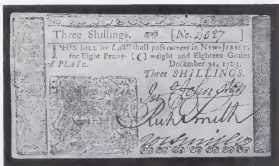 Three Shillings. [No. 4627]
THIS BILL by LAW shall pass current in NEW-JERSEY,
for Eight Penny- [C] weight and Eighteen Grains
of PLATE. December 31, 1763.
Three SHILLINGS.
Smith